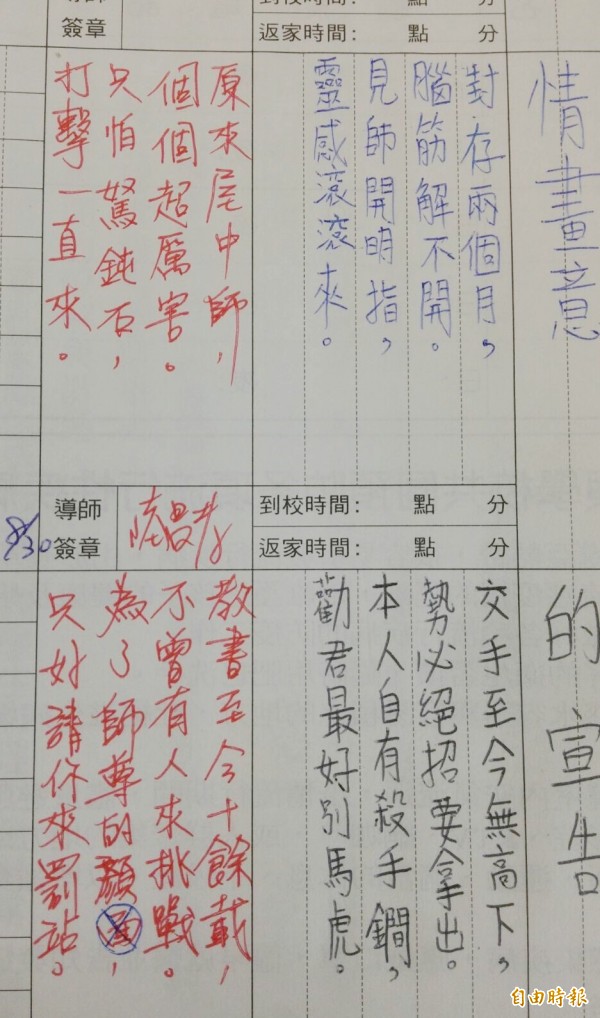 簽章
到校時間： 點 分
返家時間： 點 分
情畫意
封存兩個月，
腦筋解不開。
見師開明指，
靈感滾滾來。
原來屋中師，
個個超厲害。
只怕駑鈍石，
打擊一直來。
8/30
導師
簽章
到校時間： 點 分
返家時間： 點 分
的宣告
交手至今無高下，
勢必絕招要拿出。
本人自有殺手鐧，
勸君最好別馬虎。
教書至今十餘載，
不曾有人來挑戰。
為了師尊的顏面，
只好請你來罰站。
自由時報